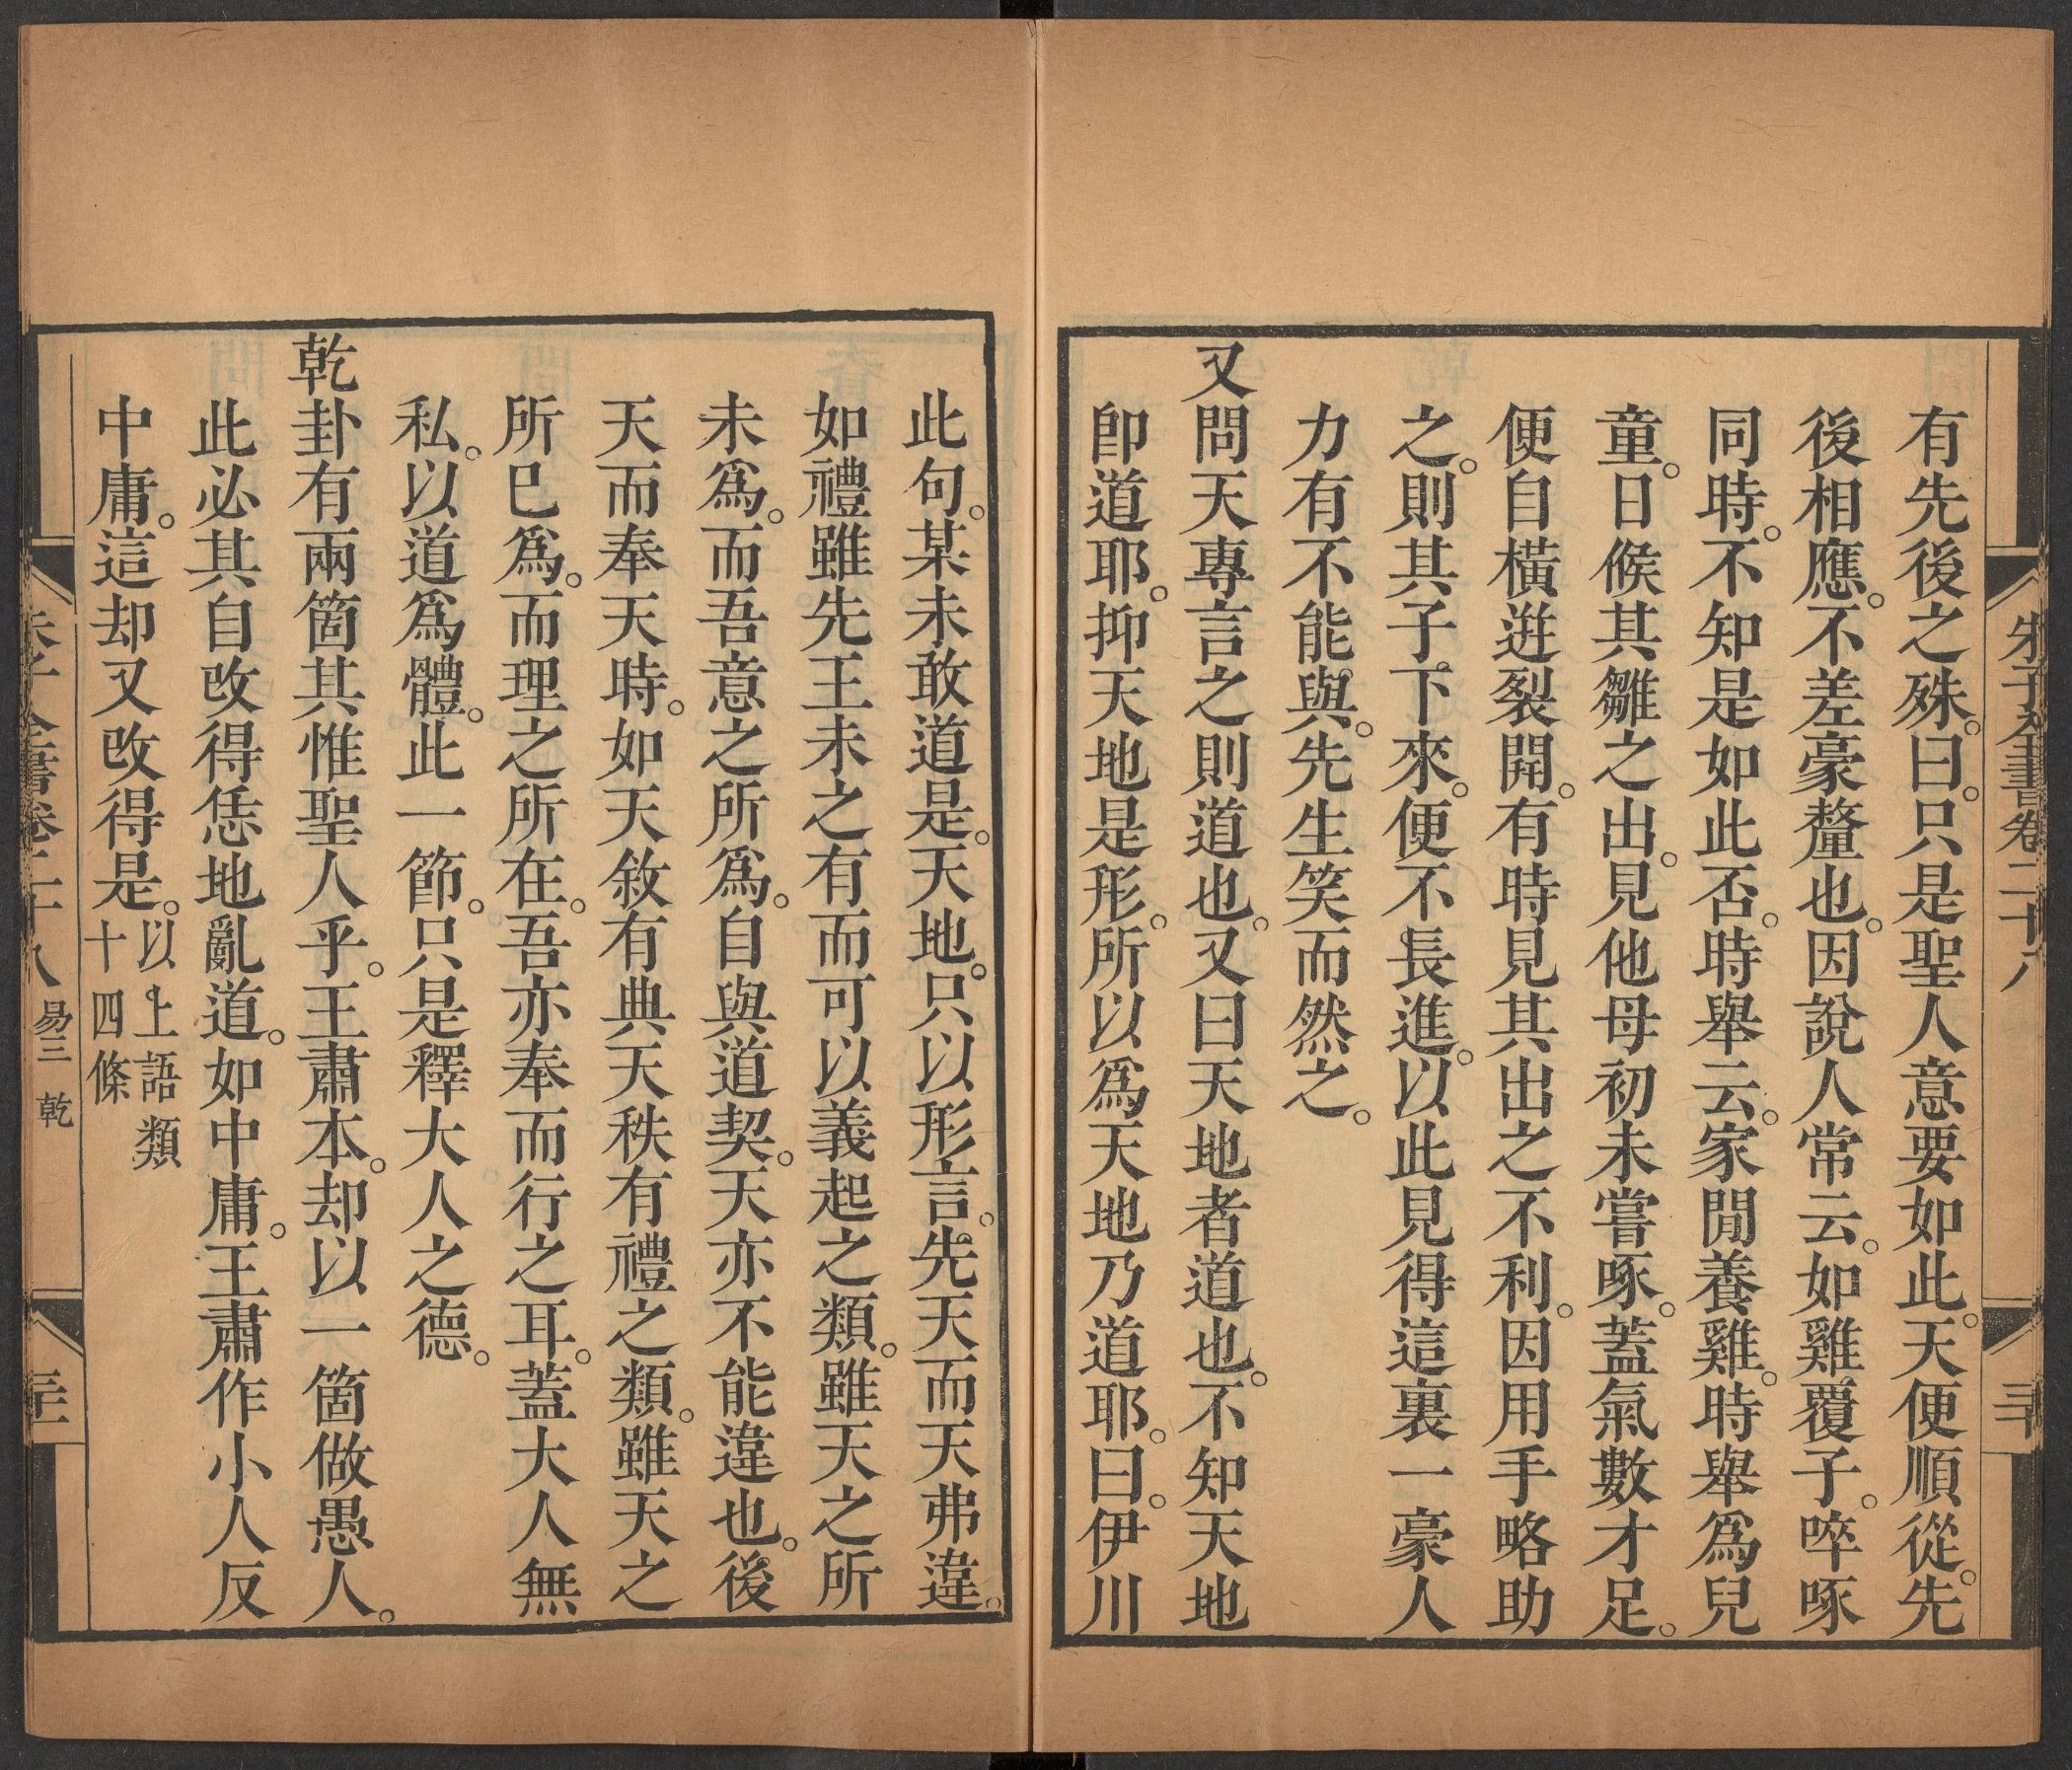 朱子全書卷二十八
三十
有先後之殊。曰。只是聖人意要如此。天便順從。先
後相應。不差豪釐也。因說人常云。如雞覆子。啐啄
同時。不知是如此否。時舉云。家閒養雞。時舉爲兒
童。日候其雛之出。見他母初未嘗啄。蓋氣數才足。
便自橫逬裂開。有時見其出之不利。因用手略助
之。則其子下來。便不長進。以此見得這裏一豪人
力有不能與。先生笑而然之。
又問天專言之則道也。又曰天地者道也。不知天地
卽道耶。抑天地是形。所以爲天地乃道耶。曰。伊川
此句。某未敢道是。天地。只以形言。先天而天弗違。
如禮雖先王未之有而可以義起之類。雖天之所
未爲。而吾意之所爲。自與道契。天亦不能違也。後
天而奉天時。如天敘有典天秩有禮之類。雖天之
所已爲。而理之所在。吾亦奉而行之耳。蓋大人無
私。以道爲體。此一節。只是釋大人之德。
乾卦有兩箇其惟聖人乎。王肅本。却以一箇做愚人。
此必其自改得恁地亂道。如中庸。王肅作小人反
中庸。這却又改得是。以上語類
十四條
朱子全書卷二十八 易三 乾
三十一